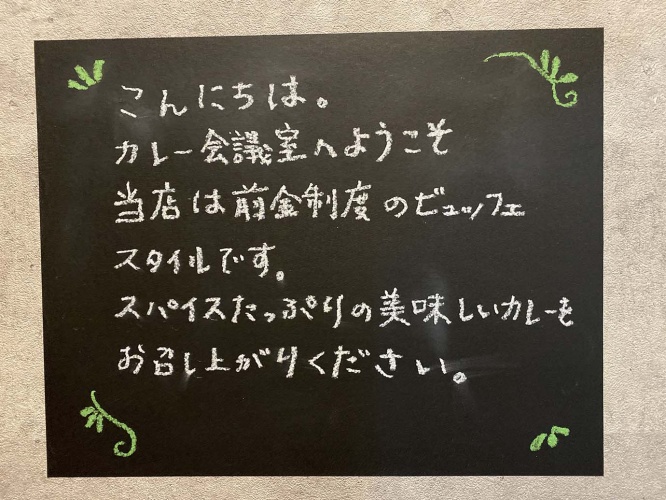 こんにちは。
カレー会議室へようこそ
当店は前金制度のビュッフェ
スタイルです。
スパイスたっぷりの美味しいカレーを
お召し上がりください。